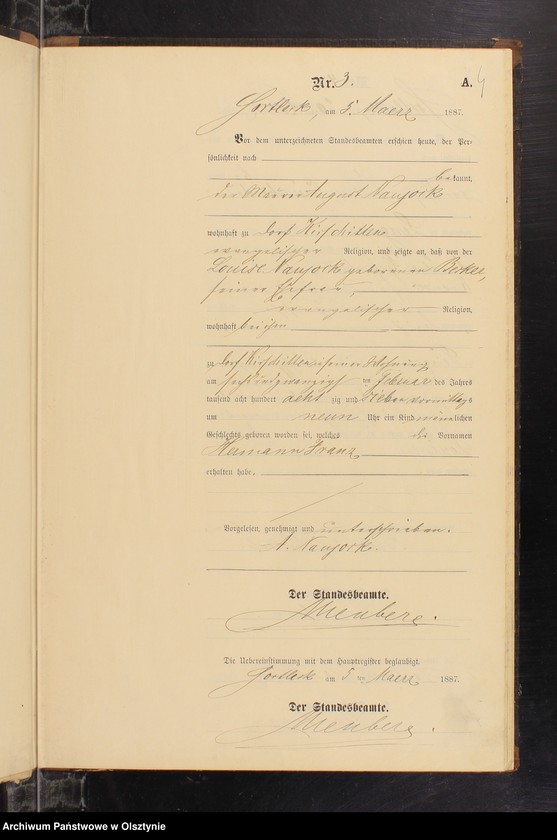 Nr. 3.
A. 4
Gortleck, am 5. Maerz 1887.
Vor dem unterzeichneten Standesbeamten erschien heute, der Per-
sönlichkeit nach
bekannt,
der Maurer August Naujock
wohnhaft zu Dorf Kirschitten
evangelischer Religion, und zeigte an, daß von der
Louise Naujock geborenen
seiner Ehefrau,
evangelischer Religion,
wohnhaft bei ihm
zu Dorf Kirschitten in seiner Wohnung
am sechs und zwanzigsten Februar des Jahres
tausend acht hundert acht zig und sieben vormittags
um neun Uhr ein Kind männlichen
Geschlechts geboren worden sei, welches die Vornamen
Hermann Franz
erhalten habe,
Vorgelesen, genehmigt und unterschrieben.
A. Naujock.
Der Standesbeamte.
Die Uebereinstimmung mit dem Hauptregister beglaubigt.
Gortleck am 5 ten Maerz 1887.
Der Standesbeamte.
Archiwum Państwowe w Olsztynie